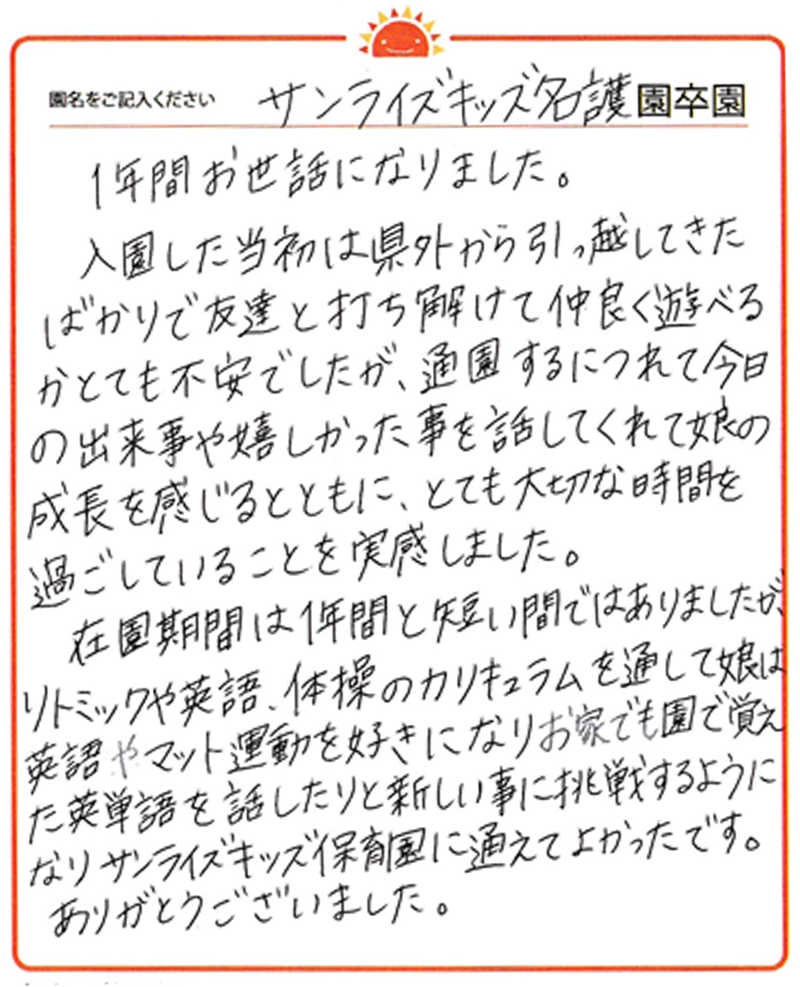 園名をご記入ください サンライズキッズ名護園卒園
1年間お世話になりました。
入園した当初は県外から引っ越してきた
ばかりで友達と打ち解けて仲良く遊べる
かとても不安でしたが、通園するにつれて今日
の出来事や嬉しかった事を話してくれて娘の
成長を感じるとともに、とても大切な時間を
過ごしていることを実感しました。
在園期間は1年間と短い間ではありましたが、
リトミックや英語、体操のカリキュラムを通して娘は
英語やマット運動を好きになりお家でも園で覚え
た英単語を話したりと新しい事に挑戦するように
なりサンライズキッズ保育園に通えてよかったです。
ありがとうございました。